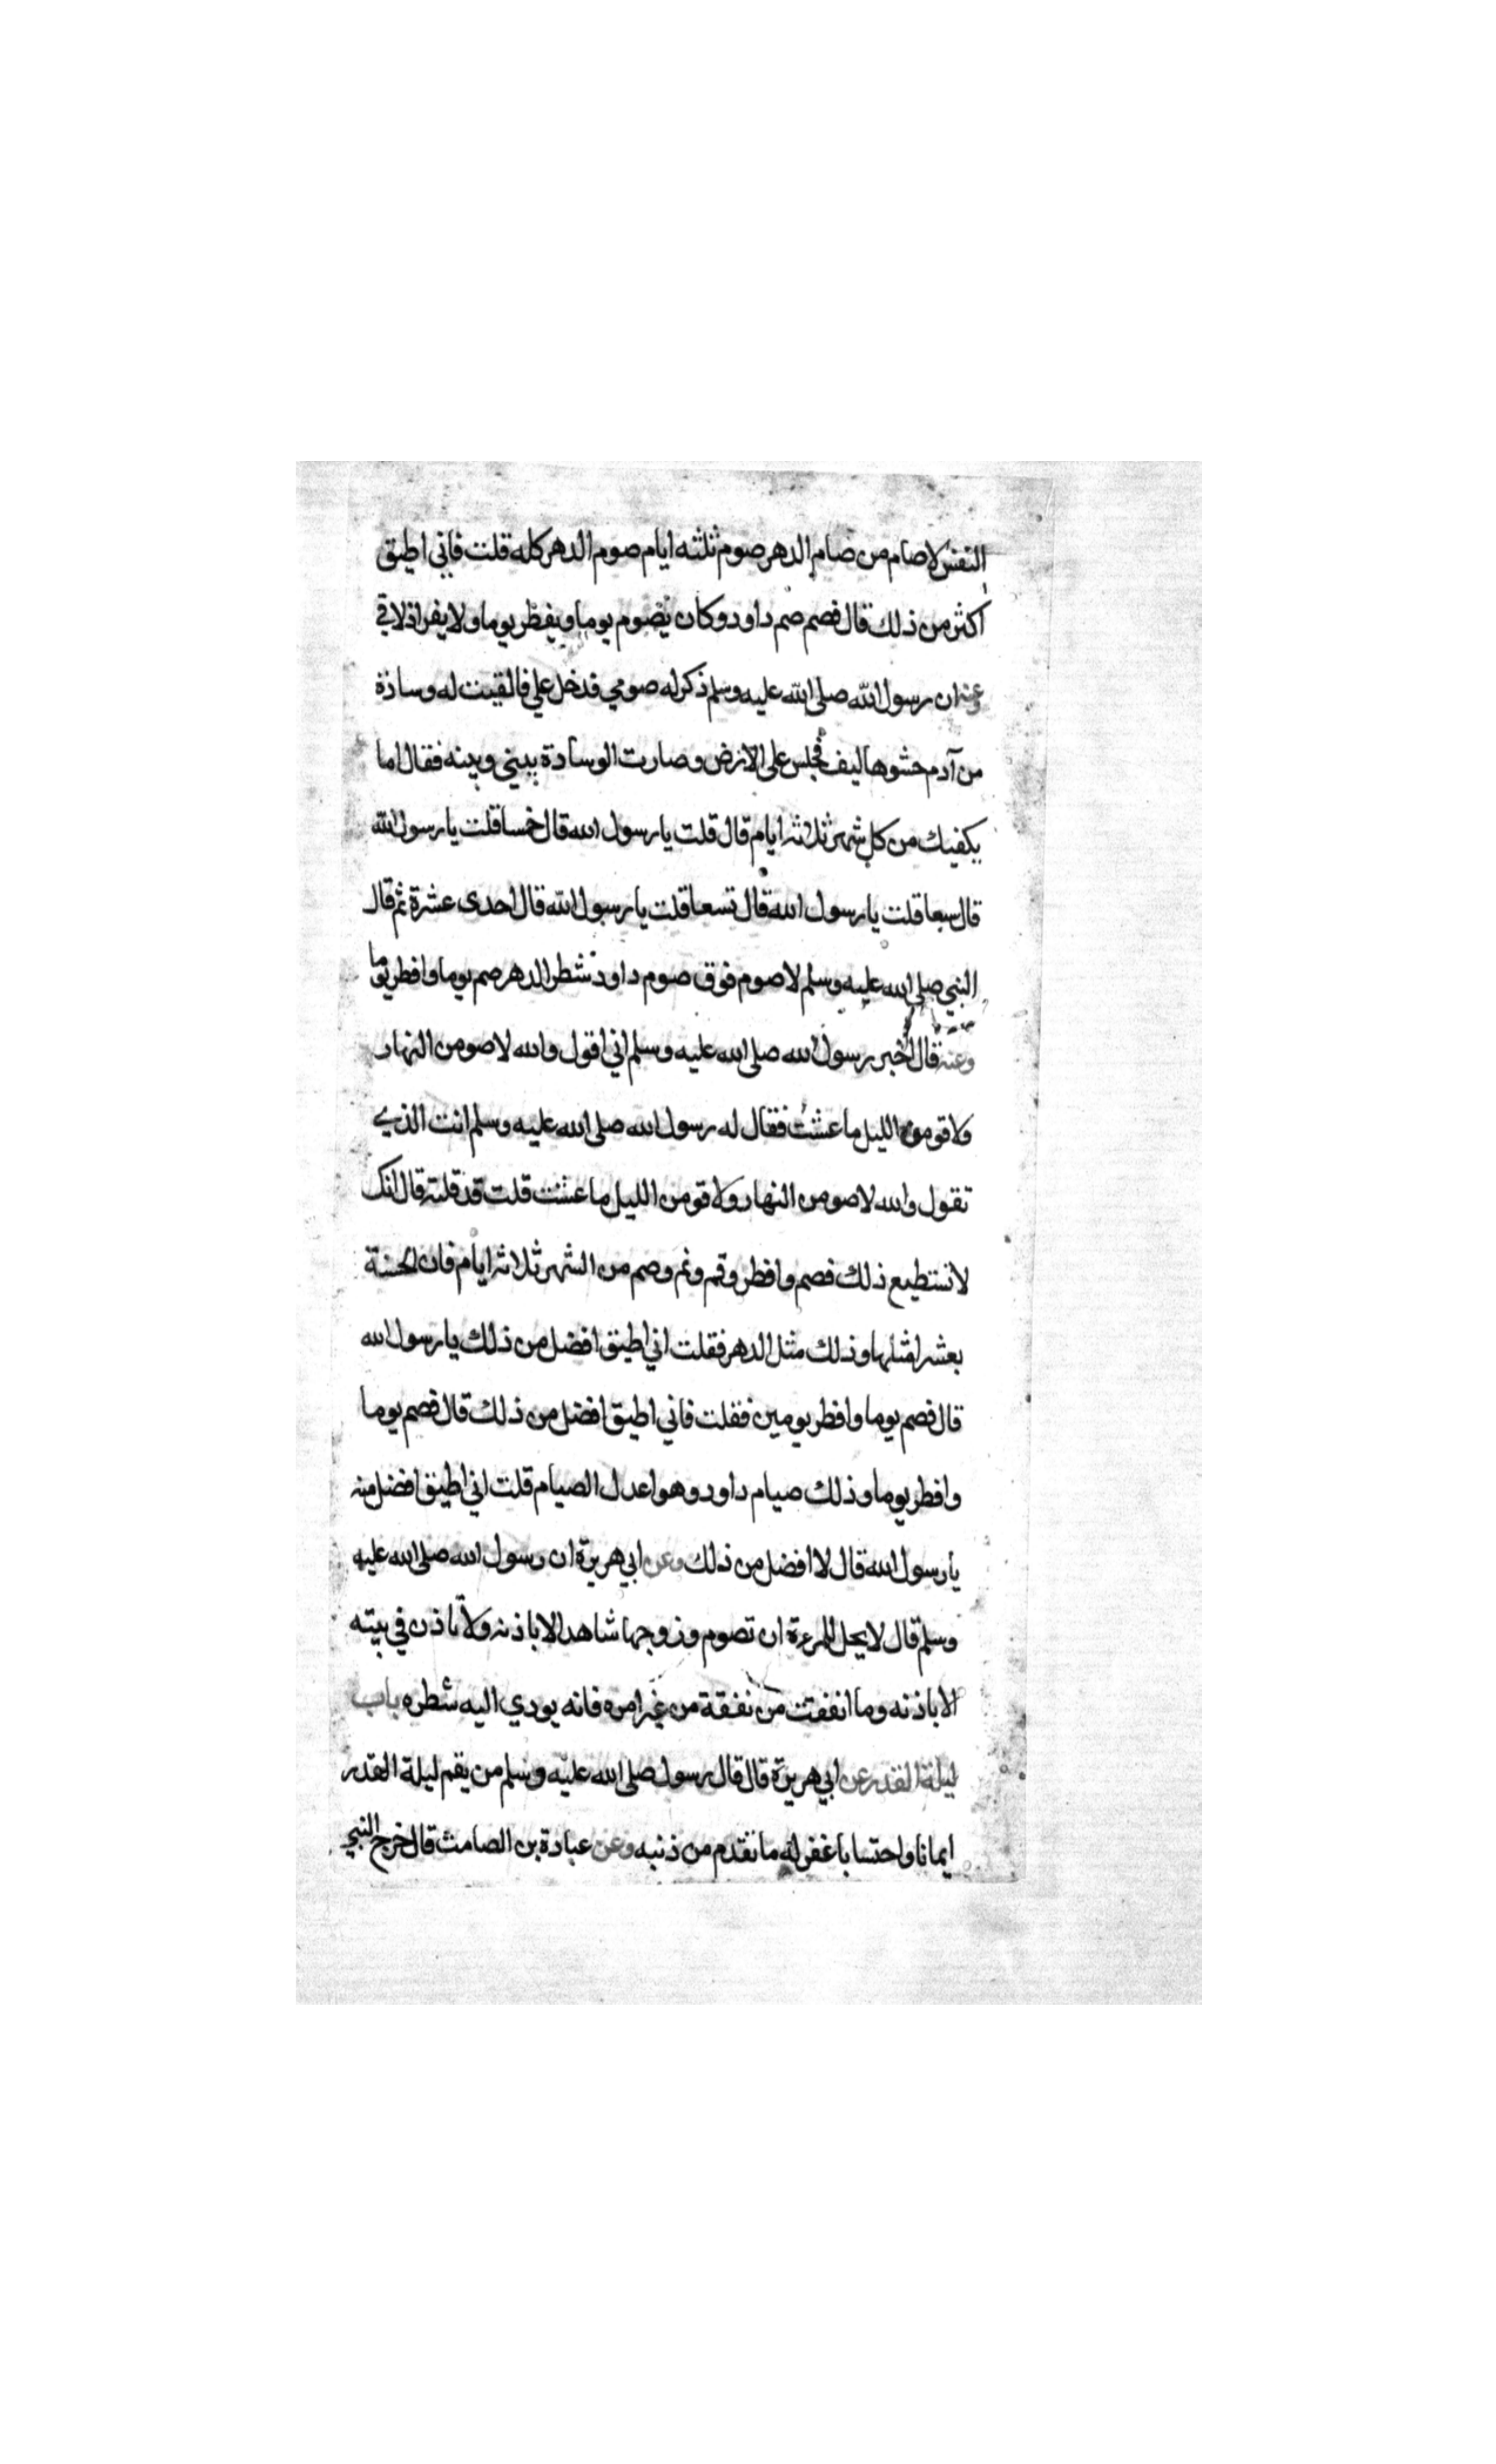 النفس لا صام من صام الدهر صوم ثلثه ايام صوم الدهر كله قلت فاني اطيق
اكثر من ذلك قال فصم صم داود وكان يصوم يوما ويفطر يوما ولا يفر اذ لاقي
وعنه ان رسول الله صلى الله عليه وسلم ذكر له صومي فدخل علي فالقيت له وسادة
من آدم حشوها ليف فجلس على الارض وصارت الوسادة بيني وبينه فقال اما
يكفيك من كل شهر ثلاثه ايام قال قلت يا رسول الله قال خمسا قلت يا رسول الله
قال سبعا قلت يا رسول الله قال تسعا قلت يا رسول الله قال احدى عشرة ثم قال
النبي صلى الله عليه وسلم لا صوم فوق صوم داود شطر الدهر صم يوما وافطر يوما
وعنه قال اخبر رسول الله صلى الله عليه وسلم اني اقول والله لاصومن النهار
ولاقومن الليل ما عشت فقال له رسول الله صلى الله عليه وسلم انت الذي
تقول والله لاصومن النهار ولاقومن الليل ما عشت قلت قد قلته قال انك
لا تستطيع ذلك فصم وافطر وقم ونم وصم من الشهر ثلاثه ايام فان الحسنة
بعشر امثلها وذلك مثل الدهر فقلت اني اطيق افضل من ذلك يا رسول الله
قال فصم يوما وافطر يومين فقلت فاني اطيق افضل من ذلك قال فصم يوما
وافطر يوما وذلك صيام داود وهو اعدل الصيام قلت اني اطيق افضل منه
يا رسول الله قال لا افضل من ذلك وعن ابي هريرة ان رسول الله صلى الله عليه
وسلم قال لا يحل للمرءة ان تصوم وزوجها شاهد الا باذنه ولا تاذن في بيته
الا باذنه وما انفقت من نفقة من غير امره فانه يودي اليه شطره باب
ليلة القدر عن ابي هريرة قال قال رسول صلى الله عليه وسلم من يقم ليلة القدر
ايمانا واحتسابا غفر له ما تقدم من ذنبه وعن عبادة بن الصامت قال خرج النبي